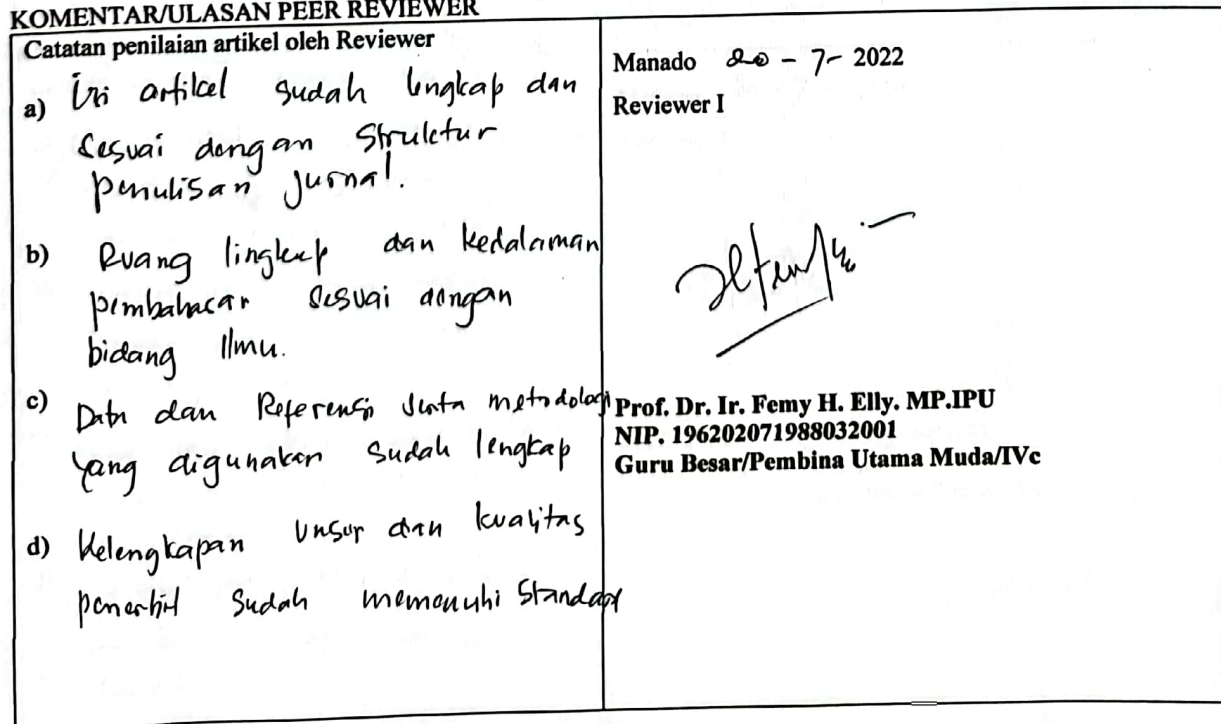 KOMENTAR/ULASAN PEER REVIEWER
Catatan penilaian artikel oleh Reviewer
a) Isi artikel sudah lengkap dan
sesuai dengan struktur
penulisan jurnal.
b) Ruang lingkup dan kedalaman
pembahasan sesuai dengan
bidang Ilmu.
c) Data dan Referensi serta metodologi
yang digunakan sudah lengkap
d) Kelengkapan Unsur dan kualitas
penerbit sudah memenuhi Standar
Manado 20 - 7 - 2022
Reviewer I
Prof. Dr. Ir. Femy H. Elly. MP.IPU
NIP. 196202071988032001
Guru Besar/Pembina Utama Muda/IVc